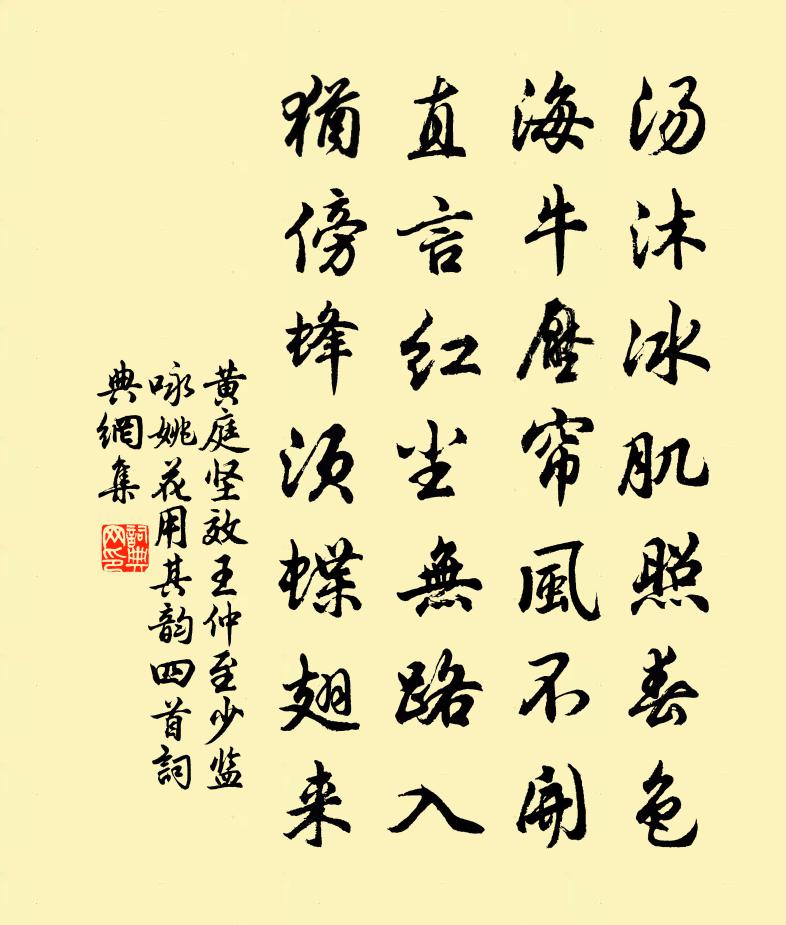 汤沐冰肌照春色
海牛壓帘風不開
直言红尘無路入
猶傍蜂须蝶翅来
黄庭坚效王仲至少监
咏姚花用其韵四首詞
典網集
詞典
网印